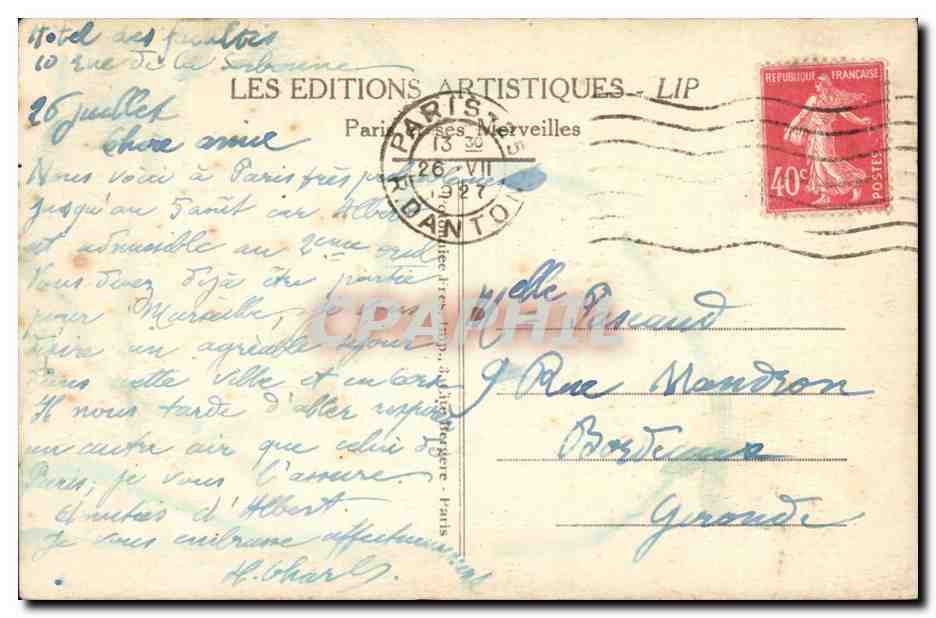 Hôtel des facultés
10 rue de la Sorbonne
26 juillet
Chère amie
Nous voici à Paris très
jusqu'au 5 août car Albert
est admissible au 2ème oral
Vous devez déjà être partie
pour Marseille, je vous
un agréable séjour
dans cette ville et
Il nous tarde d'aller respirer
un autre air que celui de
Paris, je vous l'assure.
Amitiés d'Albert.
Je vous embrasse affectueusement
LES EDITIONS ARTISTIQUES - LIP
Paris et ses Merveilles
PARIS
13 30
26 - VII
1927
R. DANTON
REPUBLIQUE FRANÇAISE
40c
POSTES
Frères, Imp., 3, Cité Bergère - Paris
CPAPHIL
Melle
9 Rue
Bordeaux
Gironde